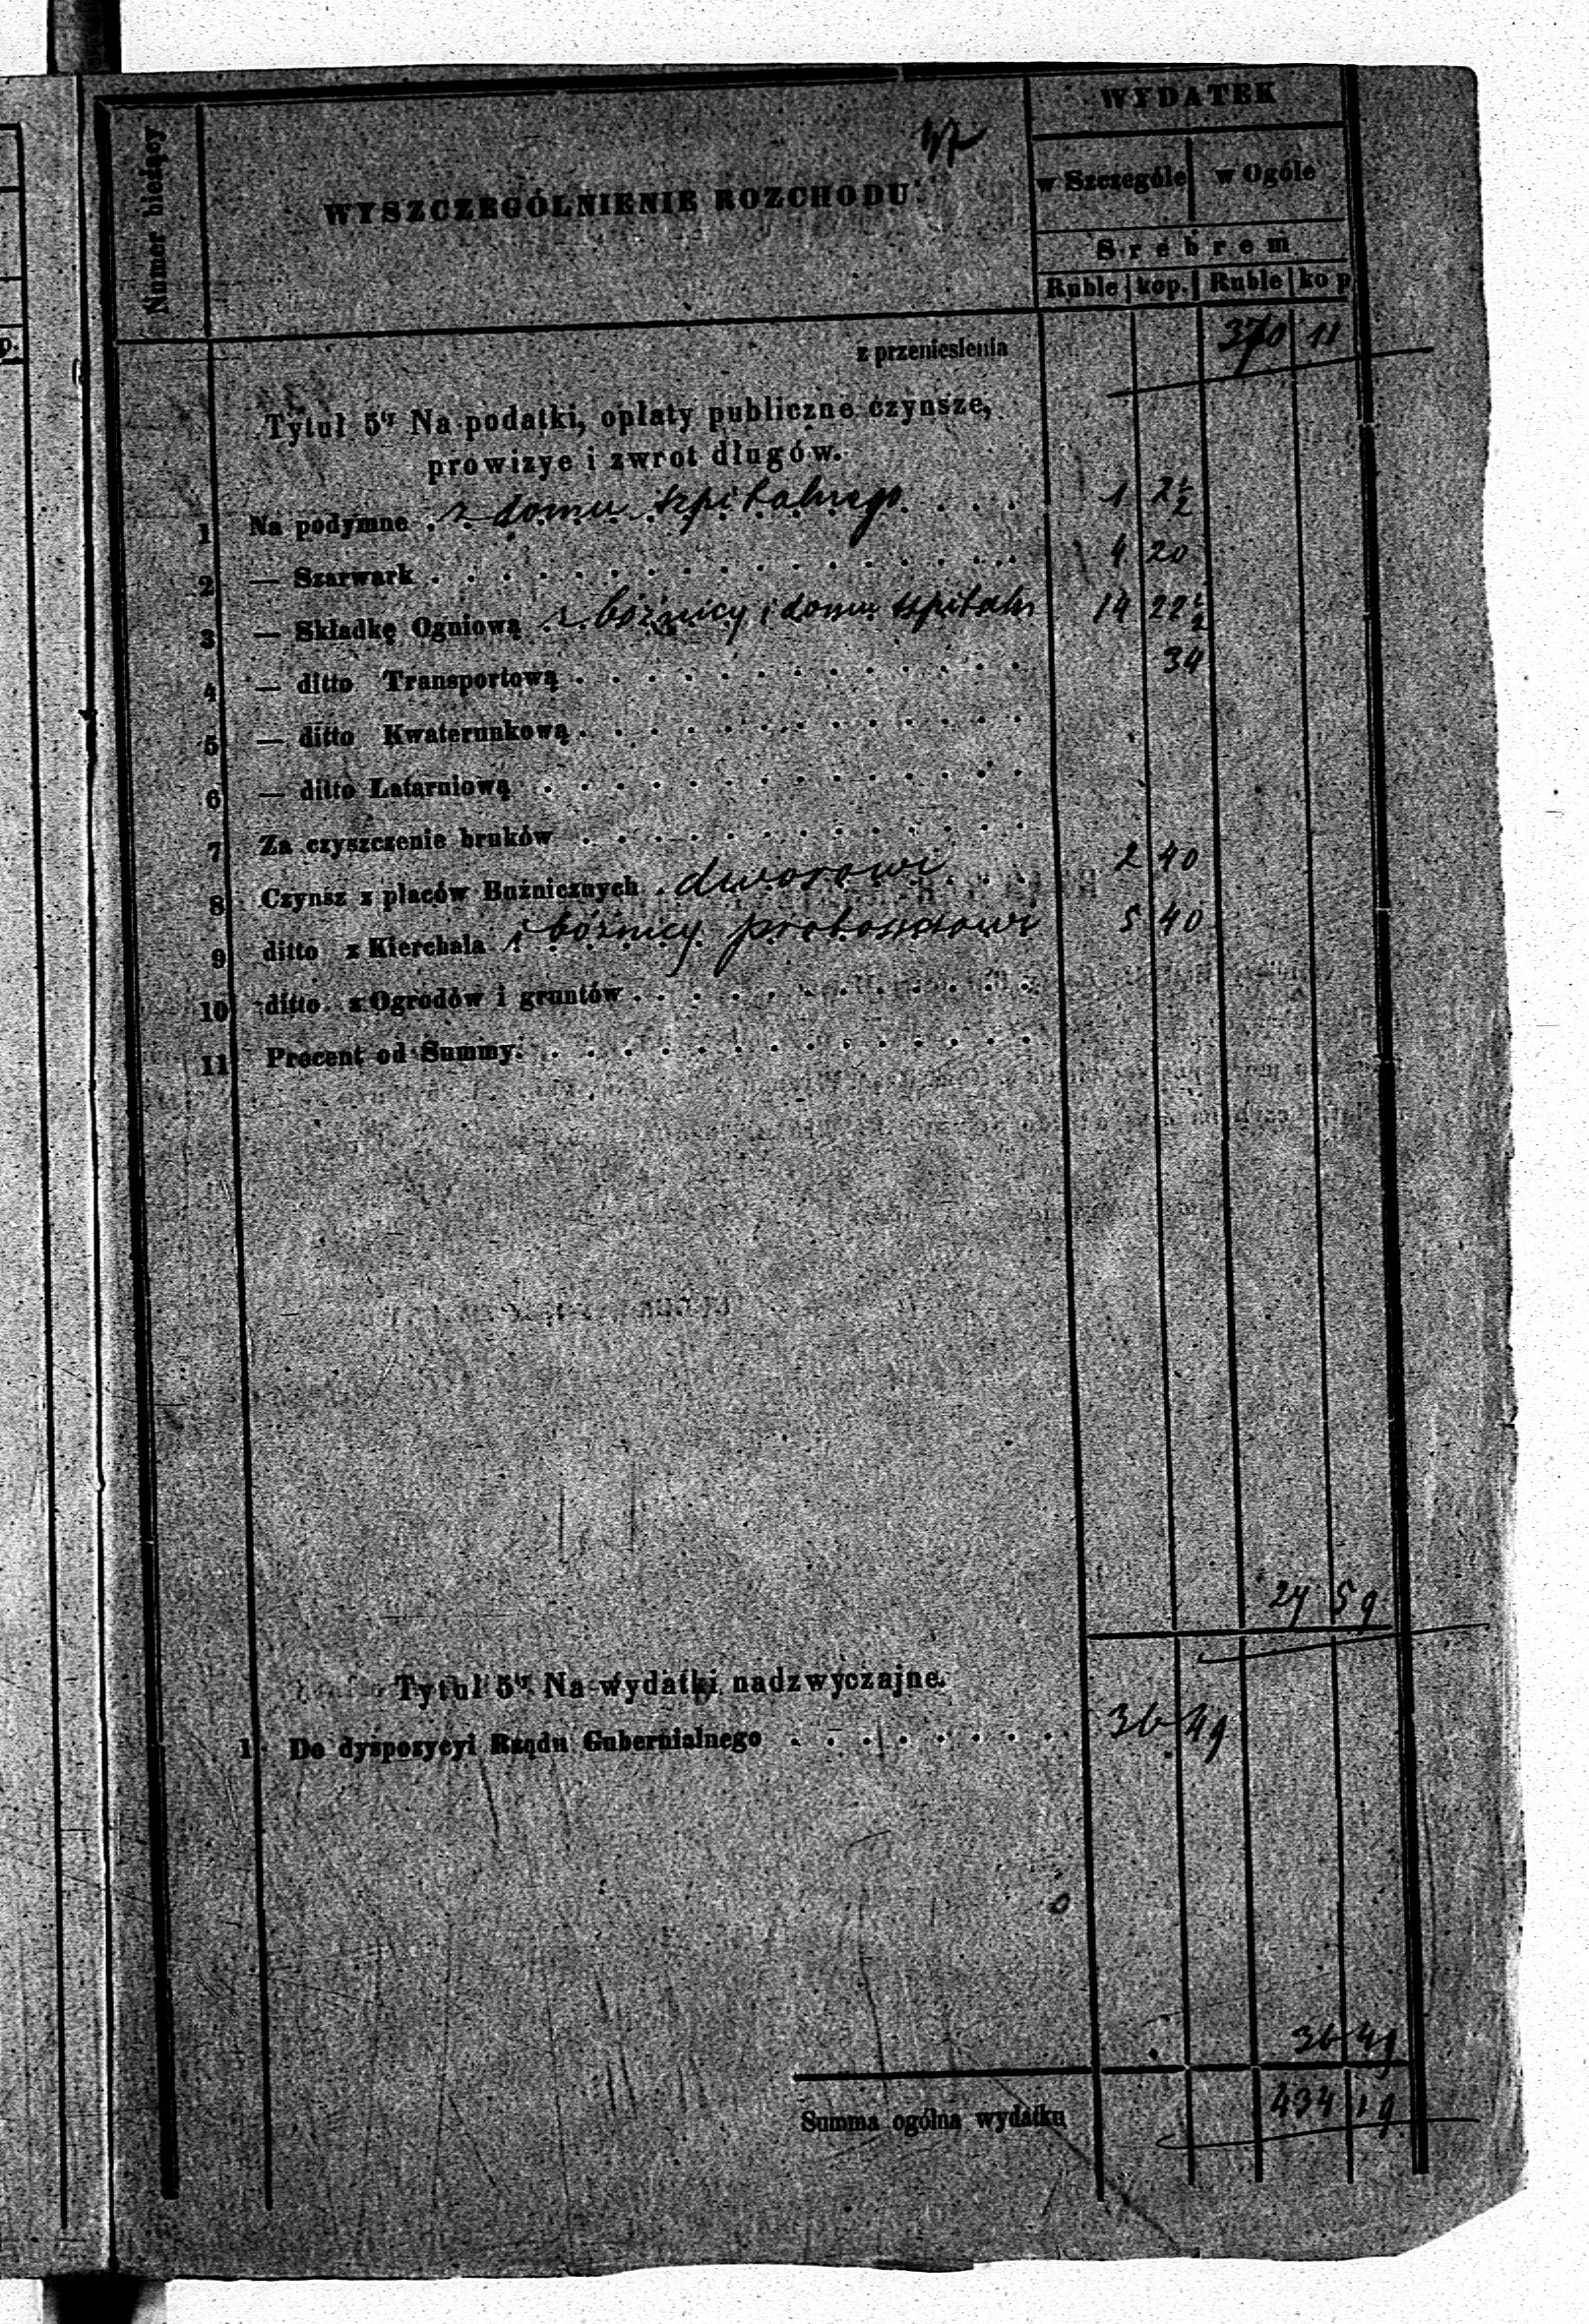 47
WYDATEK
Numer bieżący
WYSZCZEGÓLNIENIE ROZCHODU
w Szczególe w Ogóle
Srebrem
Ruble kop. Ruble kop
z przeniesienia 370 11
Tytuł 5ty Na podatki, opłaty publiczne czynsze,
prowizye i zwrot długów.
1 Na podymne . z domu szpitalnego . . . 1 2½
2 — Szarwark . . . 4 20
3 — Składkę Ogniową z bóżnicy i domu szpitaln 14 22½
4 — ditto Transportową . . . 34
5 — ditto Kwaterunkową . . .
6 — ditto Latarniową . . .
7 Za czyszczenie bruków . . .
8 Czynsz z placów Buźnicznych . dworowi . . . 2 40
9 ditto z Kierchala i bóżnicy proboszczowi 5 40
10 ditto z Ogrodów i gruntów . . .
11 Procent od Summy. . . .
27 59
Tytuł 5ty Na wydatki nadzwyczajne.
1 Do dyspozycyi Rządu Gubernialnego . . . 36 49
36 49
Summa ogólna wydatku 434 19